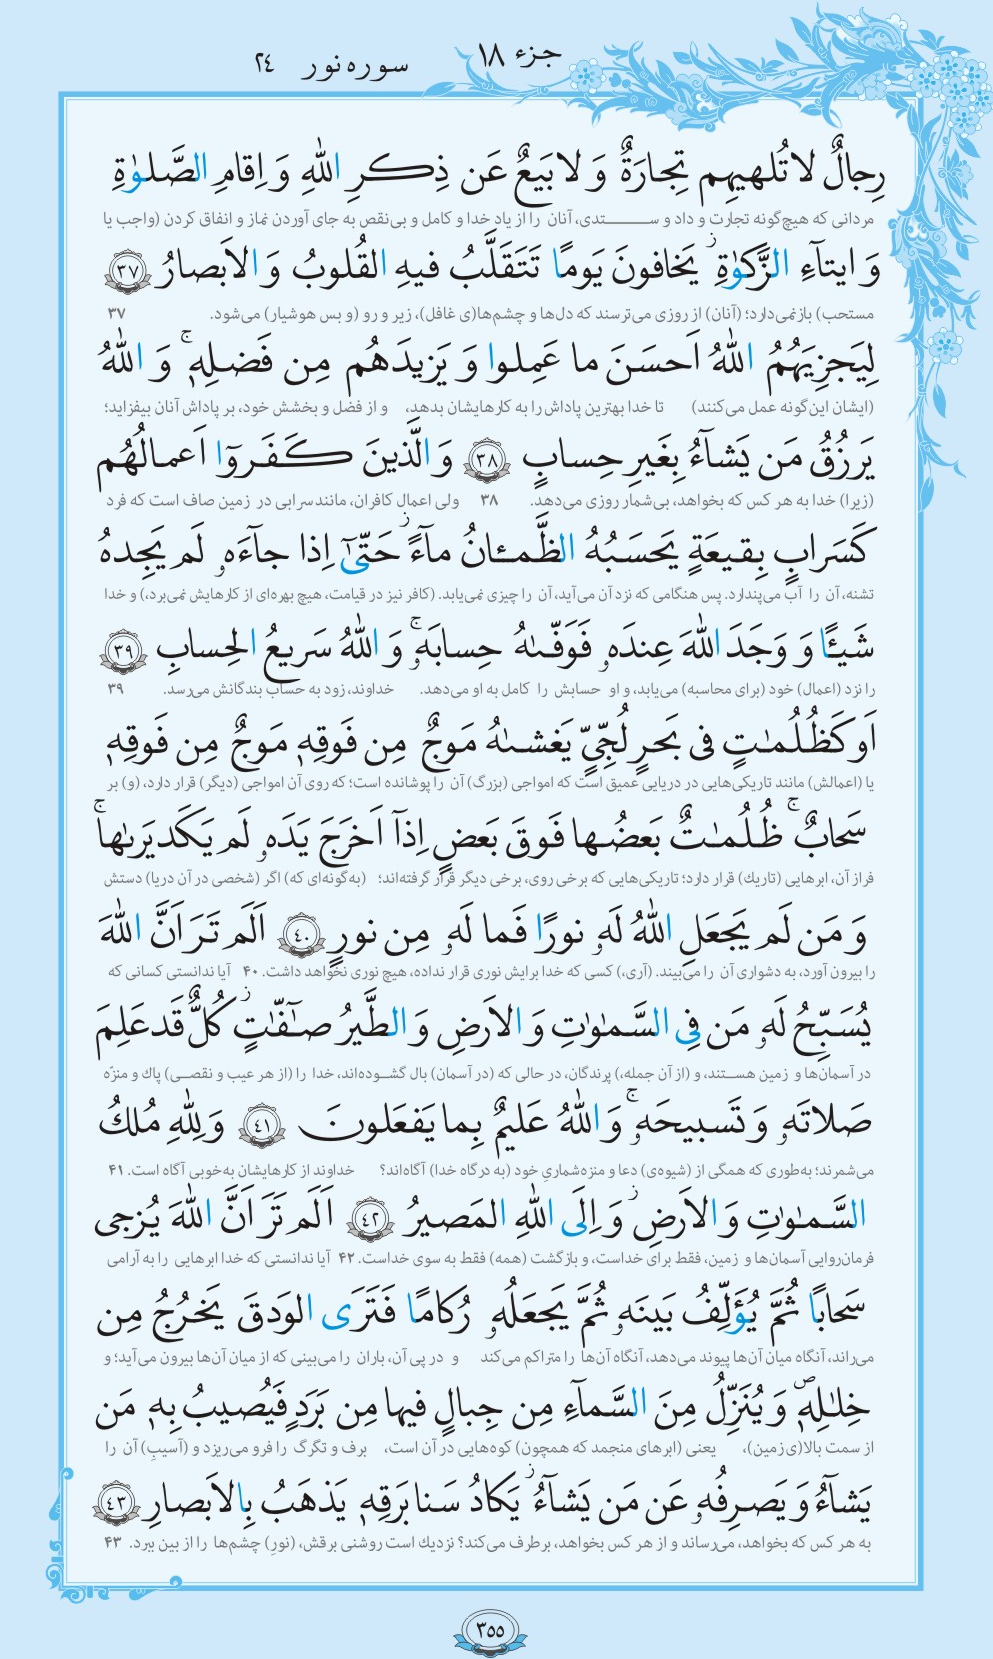 جزء ١٨
سوره نور ٢٤
رِجالٌ لا تُلهيهِم تِجارَةٌ وَ لا بَيعٌ عَن ذِكرِ اللّٰهِ وَ اِقامِ الصَّلوٰةِ
مردانی که هیچ‌گونه تجارت و داد و ستدی، آنان را از یاد خدا و کامل و بی‌نقص به جای آوردن نماز و انفاق کردن (واجب یا
وَ ايتآءِ الزَّكوٰةِ ۙ يَخافونَ يَومًا تَتَقَلَّبُ فيهِ القُلوبُ وَ الاَبصارُ ٣٧
مستحب) باز نمی‌دارد؛ (آنان) از روزی می‌ترسند که دل‌ها و چشم‌ها(ی غافل)، زیر و رو (و بس هوشیار) می‌شود. ۳۷
لِيَجزِيَهُمُ اللّٰهُ اَحسَنَ ما عَمِلوا وَ يَزيدَهُم مِن فَضلِهٖ ۚ وَ اللّٰهُ
(ایشان این‌گونه عمل می‌کنند) تا خدا بهترین پاداش را به کارهایشان بدهد، و از فضل و بخشش خود، بر پاداش آنان بیفزاید؛
يَرزُقُ مَن يَشآءُ بِغَيرِ حِسابٍ ٣٨ وَ الَّذينَ كَفَروٓا اَعمالُهُم
(زیرا) خدا به هر کس که بخواهد، بی‌شمار روزی می‌دهد. ۳۸ ولی اعمال کافران، مانند سرابی در زمین صاف است که فرد
كَسَرابٍ بِقيعَةٍ يَحسَبُهُ الظَّمـٔانُ مآءً ۙ حَتّىٰٓ اِذا جآءَهٗ لَم يَجِدهُ
تشنه، آن را آب می‌پندارد. پس هنگامی که نزد آن می‌آید، آن را چیزی نمی‌یابد. (کافر نیز در قیامت، هیچ بهره‌ای از کارهایش نمی‌برد،) و خدا
شَيـًٔا وَ وَجَدَ اللّٰهَ عِندَهٗ فَوَفّىٰهُ حِسابَهٗ ۚ وَ اللّٰهُ سَريعُ الحِسابِ ٣٩
را نزد (اعمال) خود (برای محاسبه) می‌یابد، و او حسابش را کامل به او می‌دهد. خداوند، زود به حساب بندگانش می‌رسد. ۳۹
اَو كَظُلُمٰتٍ فى بَحرٍ لُجِّيٍّ يَغشىٰهُ مَوجٌ مِن فَوقِهٖ مَوجٌ مِن فَوقِهٖ
یا (اعمالش) مانند تاریکی‌هایی در دریایی عمیق است که امواجی (بزرگ) آن را پوشانده است؛ که روی آن امواجی (دیگر) قرار دارد، (و) بر
سَحابٌ ۚ ظُلُمٰتٌ بَعضُها فَوقَ بَعضٍ اِذآ اَخرَجَ يَدَهٗ لَم يَكَد يَرىٰها ۚ
فراز آن، ابرهایی (تاریک) قرار دارد؛ تاریکی‌هایی که برخی روی، برخی دیگر قرار گرفته‌اند؛ (به‌گونه‌ای که) اگر (شخصی در آن دریا) دستش
وَ مَن لَم يَجعَلِ اللّٰهُ لَهٗ نورًا فَما لَهٗ مِن نورٍ ٤٠ اَلَم تَرَ اَنَّ اللّٰهَ
را بیرون آورد، به دشواری آن را می‌بیند. (آری،) کسی که خدا برایش نوری قرار نداده، هیچ نوری نخواهد داشت. ۴۰ آیا ندانستی کسانی که
يُسَبِّحُ لَهٗ مَن فِى السَّمٰوٰتِ وَ الاَرضِ وَ الطَّيرُ صآفّٰتٍ ۖ كُلٌّ قَد عَلِمَ
در آسمان‌ها و زمین هستند، و (از آن جمله،) پرندگان، در حالی که (در آسمان) بال گشوده‌اند، خدا را (از هر عیب و نقصی) پاک و منزّه
صَلاتَهٗ وَ تَسبيحَهٗ ۚ وَ اللّٰهُ عَليمٌ بِما يَفعَلونَ ٤١ وَ لِلّٰهِ مُلكُ
می‌شمرند؛ به‌طوری که همگی از (شیوه‌ی) دعا و منزه‌شماری خود (به درگاه خدا) آگاه‌اند؟ خداوند از کارهایشان به‌خوبی آگاه است. ۴۱
السَّمٰوٰتِ وَ الاَرضِ ۖ وَ اِلَى اللّٰهِ المَصيرُ ٤٢ اَلَم تَرَ اَنَّ اللّٰهَ يُزجى
فرمان‌روایی آسمان‌ها و زمین، فقط برای خداست، و بازگشت (همه) فقط به سوی خداست. ۴۲ آیا ندانستی که خدا ابرهایی را به آرامی
سَحابًا ثُمَّ يُؤَلِّفُ بَينَهٗ ثُمَّ يَجعَلُهٗ رُكامًا فَتَرَى الوَدقَ يَخرُجُ مِن
می‌راند، آنگاه میان آن‌ها پیوند می‌دهد، آنگاه آن‌ها را متراکم می‌کند و در پی آن، باران را می‌بینی که از میان آن‌ها بیرون می‌آید؛ و
خِلٰلِهٖ ۖ وَ يُنَزِّلُ مِنَ السَّمآءِ مِن جِبالٍ فيها مِن بَرَدٍ فَيُصيبُ بِهٖ مَن
از سمت بالا(ی زمین)، یعنی (ابرهای منجمد که همچون) کوه‌هایی در آن است، برف و تگرگ را فرو می‌ریزد و (آسیبِ) آن را
يَشآءُ وَ يَصرِفُهٗ عَن مَن يَشآءُ ۖ يَكادُ سَنا بَرقِهٖ يَذهَبُ بِالاَبصارِ ٤٣
به هر کس که بخواهد، می‌رساند و از هر کس بخواهد، برطرف می‌کند؟ نزدیک است روشنی برقش، (نورِ) چشم‌ها را از بین ببرد. ۴۳
٣٥٥